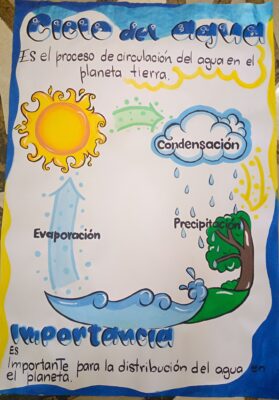 Ciclo del agua
Es el proceso de circulación del agua en el
planeta tierra.
Condensación
Precipitación
Evaporación
Importancia
Es
importante para la distribución del agua en
el planeta.